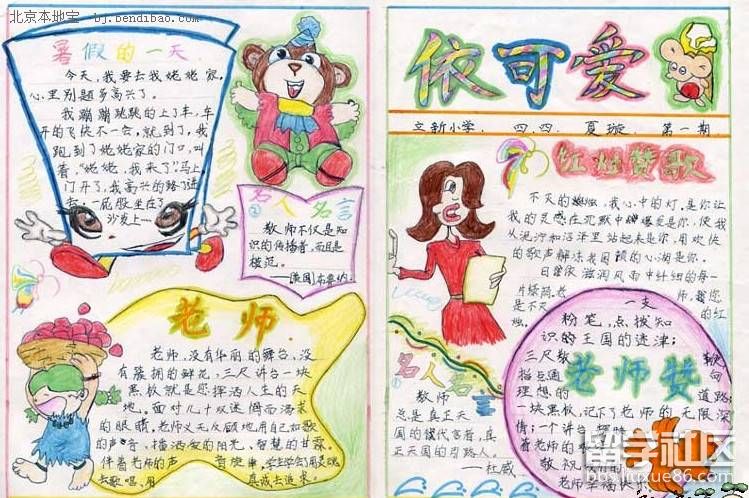 北京本地宝 - bj.bendibao.com
暑假的一天
今天，我要去我姥姥家，
心里别题多高兴了。
我蹦蹦跳跳的上了车，车
开的飞快不一会，就到了，我
跑到了姥姥家的门口，叫
着“姥姥，我来了”。马上
门开了，我高兴的
去，一屁股坐在了
沙发上
名人名言
②
教师不仅是知
识的传播者，而且是
模范。
老师
老师，没有华丽的舞台，没
有簇拥的鲜花，三尺讲台一块
黑板就是您挥洒人生的天
地。面对几十双迷惘而渴求
的眼睛，老师义无反顾地用自己如歌
的声音，播洒爱的阳光、智慧的甘霖。
伴着老师的声
去歌唱、用
真诚去追求。
依可爱
立新小学．四．四．夏璇．第一期
红烛赞歌
不灭的，我心中的灯，是你让
我的灵感在沉默中爆发是你，使我
从泥泞和沼泽里站起来是你，用欢快
的歌声解冻我困顿的心涧是你。
日曾依滋润风雨中纤细的每一
片绿简。老师，您
是不灭的红
烛。
名人名言
①
教师
总是真正天
国的代言者，真
正天国的引路人。
——杜威
老师赞
一支
粉笔，点拨知
识的王国的迷津；
三尺教鞭
指点通向
理想的道路；
一块黑板，记下了老师的无限深
情；一个讲台，辉映
着老师的
敬祝
老师幸福快乐
留学社区
bbs.liuxue86.com